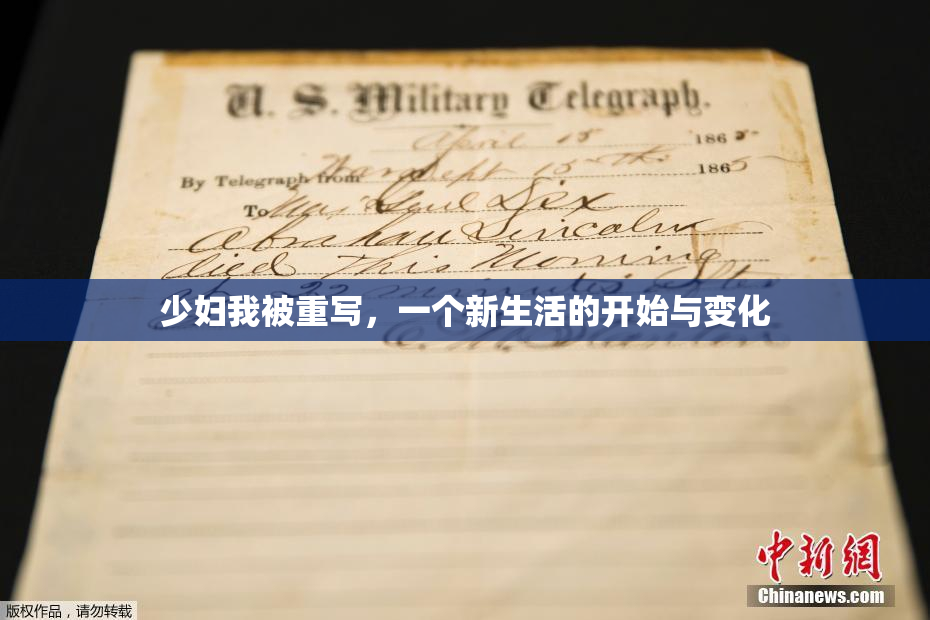 U. S. Military Telegraph.
April 15 1865
By Telegraph from War Dept 15th 1865
To Maj Genl Dix
Abraham Lincoln
died This Morning
at 22 minutes after
少妇我被重写，一个新生活的开始与变化
E. M. Stanton
中新網
Chinanews.com
版权作品，请勿转载